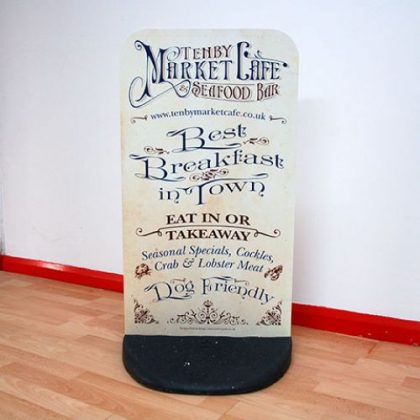 TENBY
MARKET CAFE
& SEAFOOD BAR
www.tenbymarketcafe.co.uk
Best
Breakfast
in Town
EAT IN OR
TAKEAWAY
Seasonal Specials, Cockles,
Crab & Lobster Meat
Dog Friendly